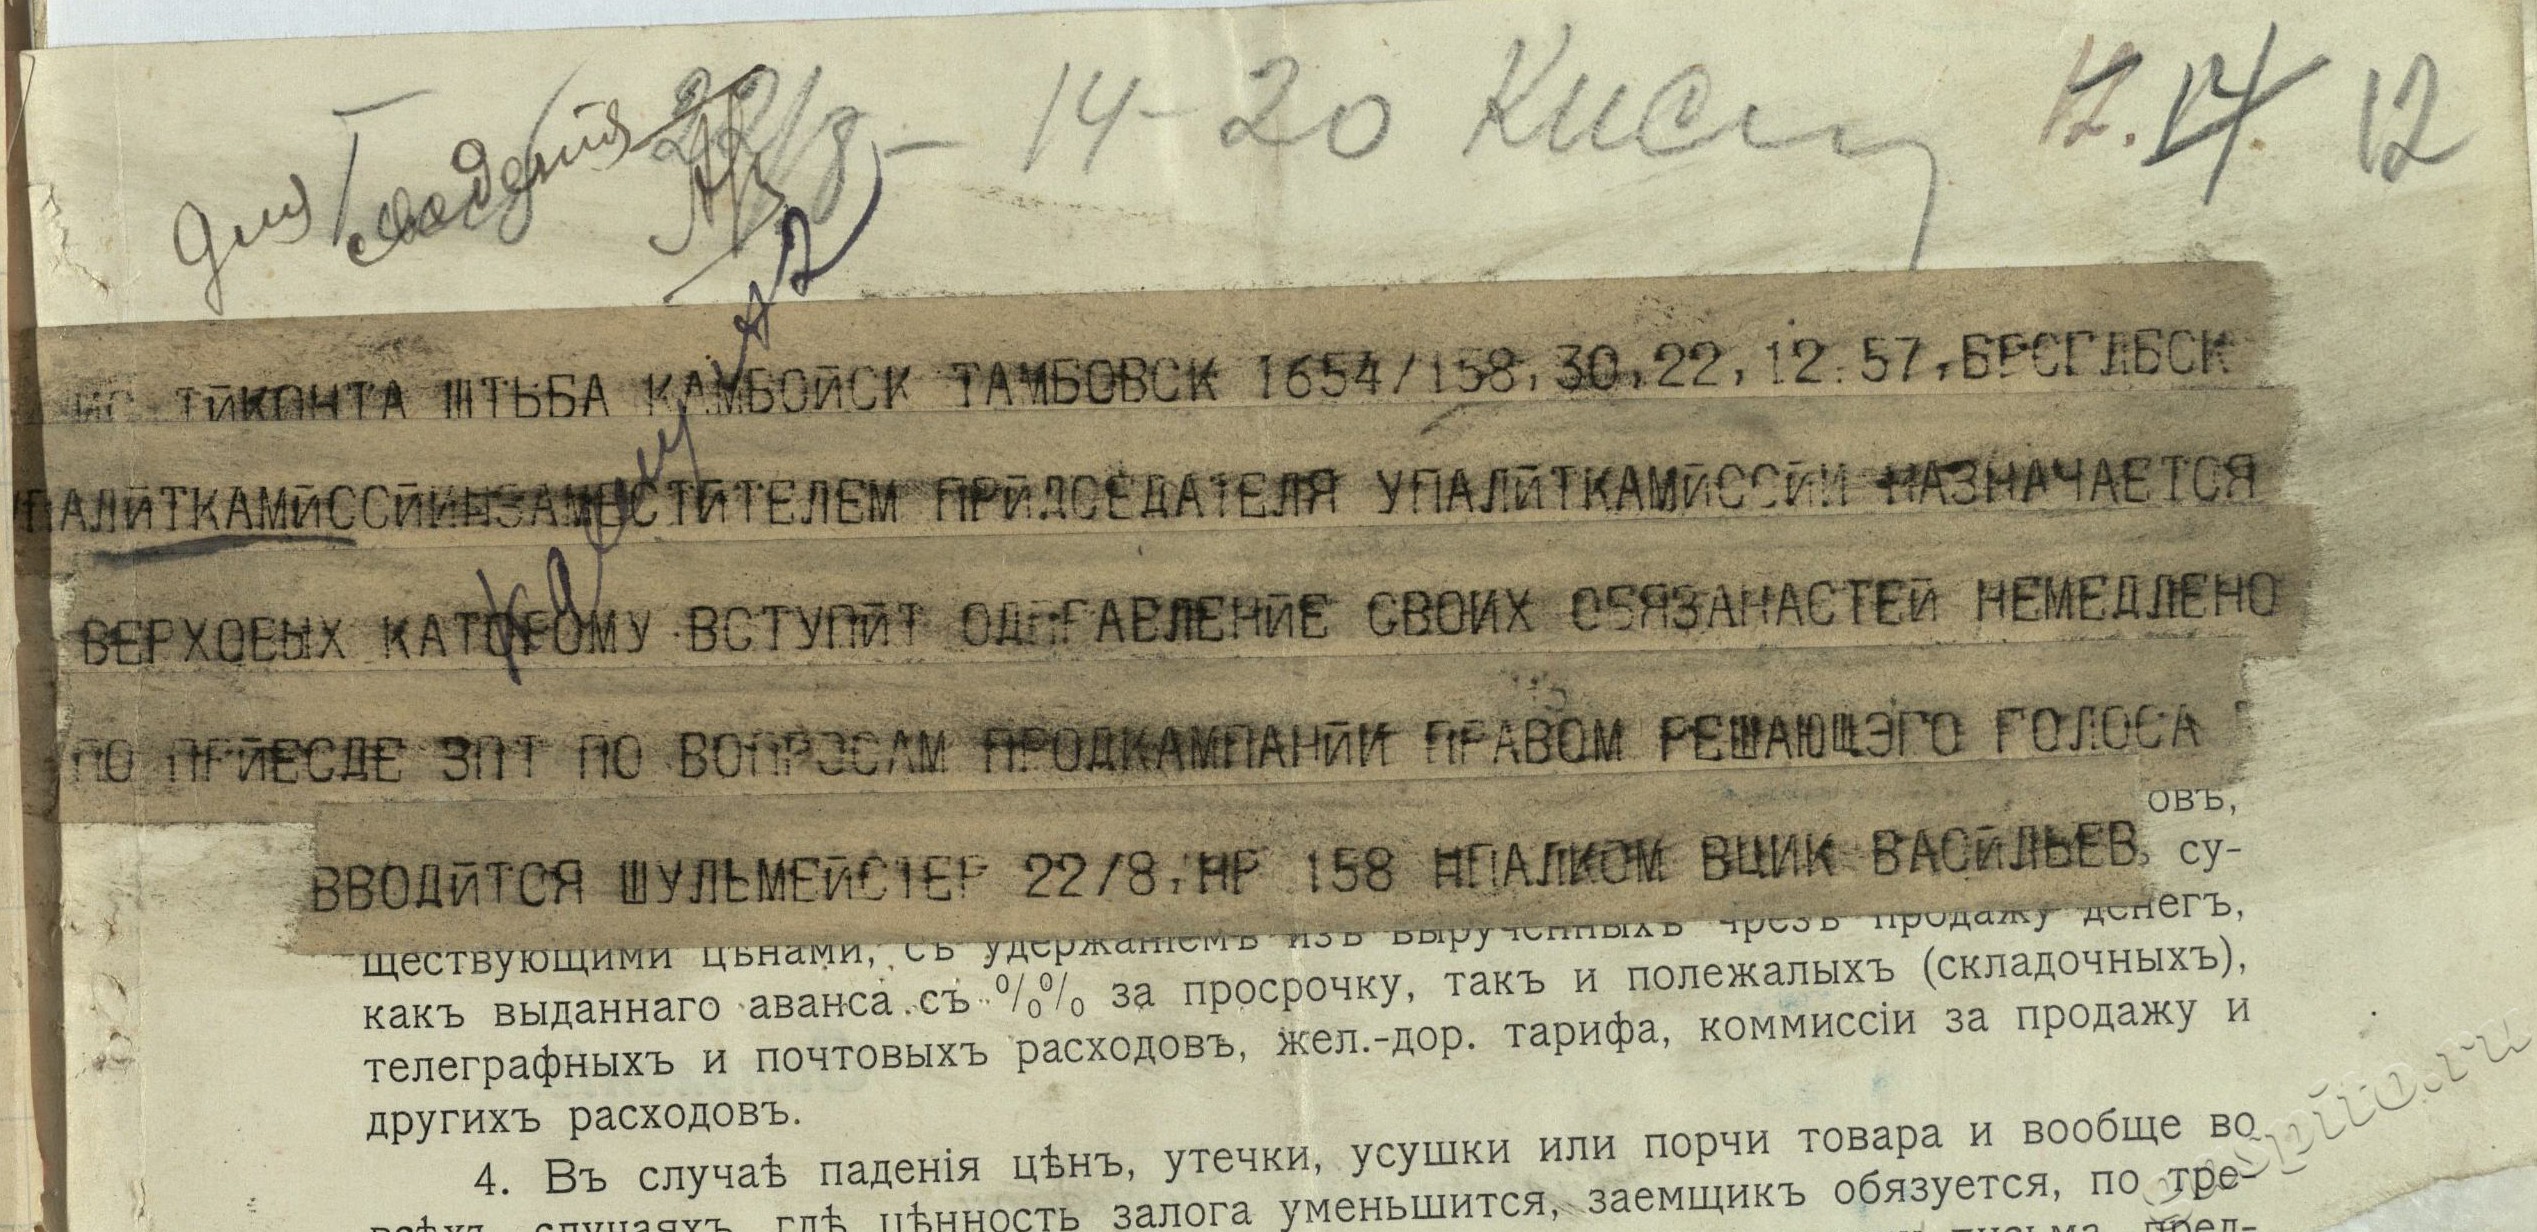 Для сведения 22/8 - 14-20 12. 12
ТЙКОНТА ШТЬБА КАМБОЙСК ТАМБОВСК 1654/158,30,22,12.57,БРСГЛБСК
УПАЛЙТКАМЙССЙИНЗАМЕСТЙТЕЛЕМ ПРЙДСЕДАТЕЛЯ УПАЛЙТКАМЙССЙИ НАЗНАЧАЕТСЯ
ВЕРХОВЫХ КАТОРОМУ ВСТУПЙТ СВОИХ ОБЯЗАНАСТЕЙ НЕМЕДЛЕНО
ПО ПРЙЕСДЕ ЗПТ ПО ВОПРОСАМ ПРОДКАМПАНЙИ ПРАВОМ РЕШАЮЩЭГО ГОЛОСА
ВВОДЙТСЯ ШУЛЬМЕЙСТЕР 22/8,НР 158 НПАЛКОМ ВЦИК ВАСЙЛЬЕВ,
овъ,
су-
ществующими цѣнами, съ удержаніемъ изъ вырученныхъ чрезъ продажу денегъ,
какъ выданнаго аванса съ %% за просрочку, такъ и полежалыхъ (складочныхъ),
телеграфныхъ и почтовыхъ расходовъ, жел.-дор. тарифа, коммиссіи за продажу и
другихъ расходовъ.
4. Въ случаѣ паденія цѣнъ, утечки, усушки или порчи товара и вообще во
всѣхъ случаяхъ, гдѣ цѣнность залога уменьшится, заемщикъ обязуется, по тре-
письма, пред-
gaspito.ru